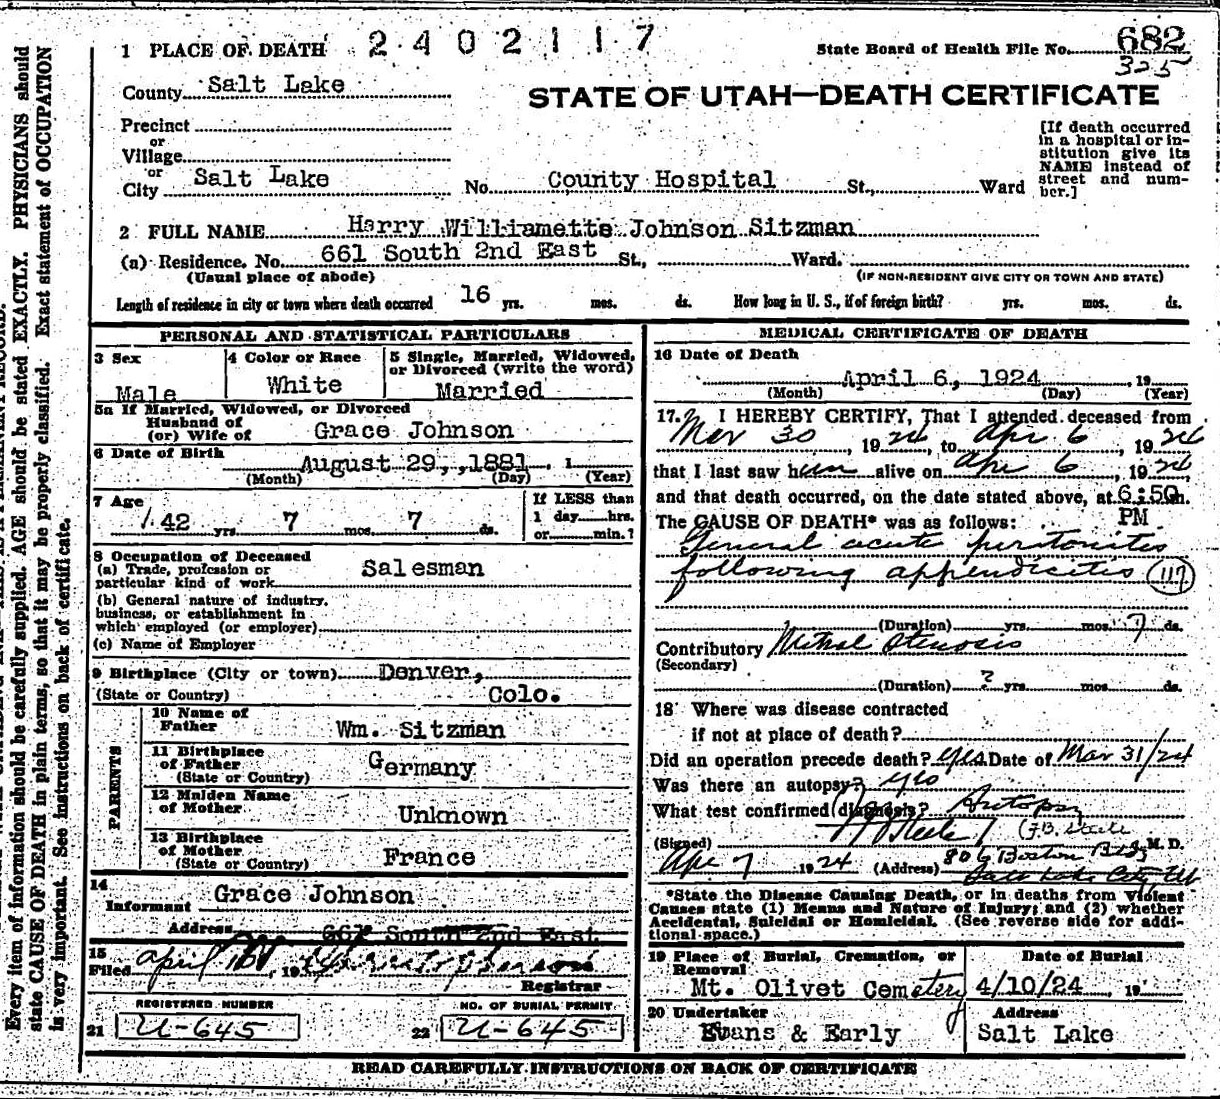 1 PLACE OF DEATH 2402117 State Board of Health File No. 682
325
County Salt Lake
STATE OF UTAH—DEATH CERTIFICATE
Precinct
or
Village
or
City Salt Lake No. County Hospital St., Ward
[If death occurred
in a hospital or in-
stitution give its
NAME instead of
street and num-
ber.]
2 FULL NAME Harry Williamette Johnson Sitzman
(a) Residence, No. 661 South 2nd East St., Ward.
(Usual place of abode) (IF NON-RESIDENT GIVE CITY OR TOWN AND STATE)
Length of residence in city or town where death occurred 16 yrs. mos. ds. How long in U. S., if of foreign birth? yrs. mos. ds.
PERSONAL AND STATISTICAL PARTICULARS
3 Sex
Male
4 Color or Race
White
5 Single, Married, Widowed,
or Divorced (write the word)
Married
5a If Married, Widowed, or Divorced
Husband of
(or) Wife of Grace Johnson
6 Date of Birth
August 29, ,1881 , 1
(Month) (Day) (Year)
7 Age
42 yrs. 7 mos. 7 ds.
If LESS than
1 day hrs.
or min.?
8 Occupation of Deceased
(a) Trade, profession or
particular kind of work Salesman
(b) General nature of industry,
business, or establishment in
which employed (or employer)
(c) Name of Employer
9 Birthplace (City or town) Denver,
(State or Country) Colo.
PARENTS
10 Name of
Father Wm. Sitzman
11 Birthplace
of Father Germany
(State or Country)
12 Maiden Name
of Mother Unknown
13 Birthplace
of Mother
(State or Country) France
14
Informant Grace Johnson
Address 661 South 2nd East
15
Filed April 19
Registrar
REGISTERED NUMBER
21 U-645
NO. OF BURIAL PERMIT
22 U-645
MEDICAL CERTIFICATE OF DEATH
16 Date of Death
April 6, 1924 , 19
(Month) (Day) (Year)
17. I HEREBY CERTIFY, That I attended deceased from
Mar 30 , 1924 to Apr 6 , 1924
that I last saw him alive on Apr 6 , 1924
and that death occurred, on the date stated above, at 6:50 m.
PM
The CAUSE OF DEATH* was as follows:
General acute peritonitis
following appendicitis (117)
(Duration) yrs. mos. 7 ds.
Contributory Mitral Stenosis
(Secondary)
(Duration) ? yrs. mos. ds.
18 Where was disease contracted
if not at place of death?
Did an operation precede death? yes Date of Mar 31/24
Was there an autopsy? yes
What test confirmed diagnosis? Autopsy
(Signed) F B Steele (F.B. Steele M. D.
Apr 7 1924 (Address) 806 Boston Bldg
Salt Lake City Ut
*State the Disease Causing Death, or in deaths from Violent
Causes state (1) Means and Nature of Injury; and (2) whether
Accidental, Suicidal or Homicidal. (See reverse side for addi-
tional space.)
19 Place of Burial, Cremation, or
Removal
Mt. Olivet Cemetery
Date of Burial
4/10/24 , 19
20 Undertaker
Evans & Early
Address
Salt Lake
READ CAREFULLY INSTRUCTIONS ON BACK OF CERTIFICATE
Every item of information should be carefully supplied. AGE should be stated EXACTLY. PHYSICIANS should
state CAUSE OF DEATH in plain terms, so that it may be properly classified. Exact statement of OCCUPATION
is very important. See instructions on back of certificate.